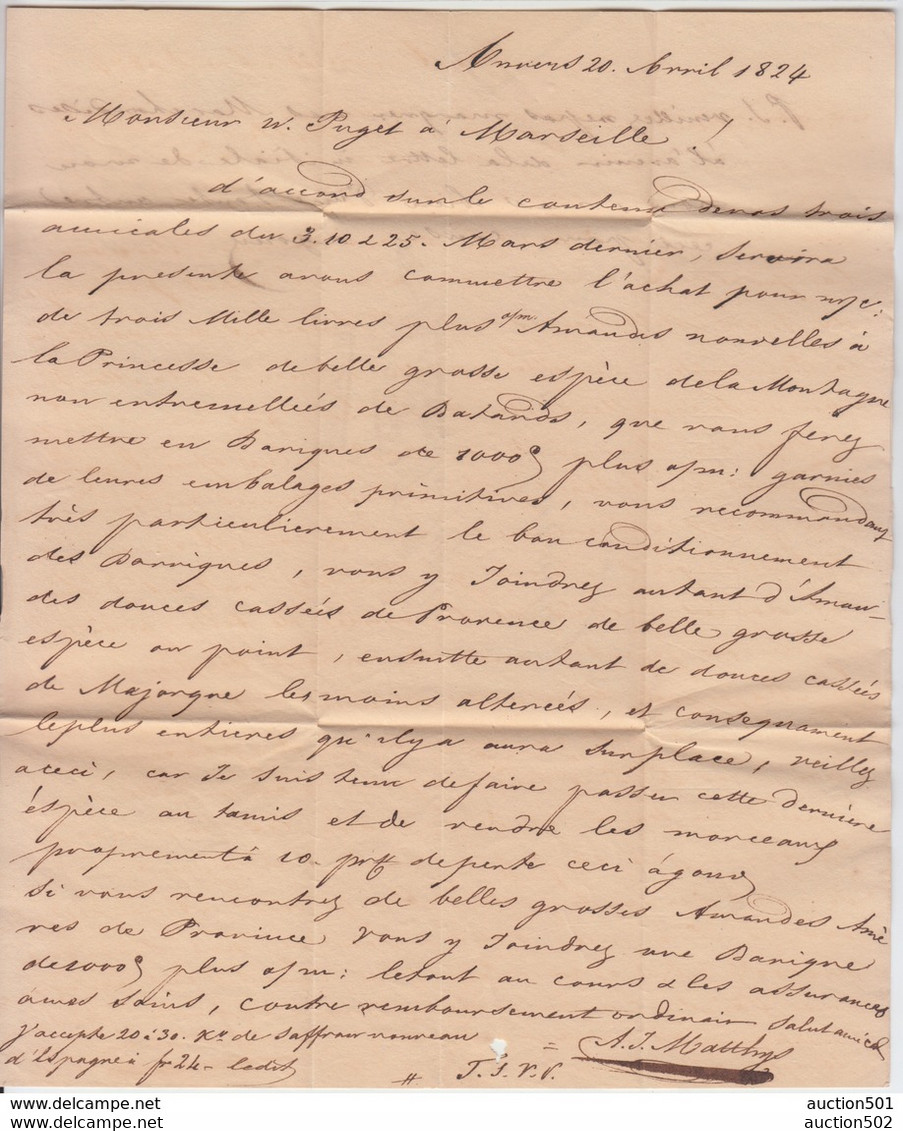 Anvers 20. Avril 1824
Monsieur W. Puget à Marseille /
d'accord sur le contenu de vos trois
amicales du 3. 10 & 25. Mars dernier, servira
la presente avous commettre l'achat pour m/c:
de trois Mille livres plus o/m. Amandes nouvelles à
la Princesse de belle grosse espèce dela Montagne
non entremellées de Batards, que vous ferez
mettre en Bariques de 1000 plus o/m: garnies
de leures embalages primitives, vous recommandant
très particulierement le bon conditionnement
des Barriques, vous y Joindrez autant d'Aman-
des douces cassées de Provence de belle grosse
espèce au point, ensuitte autant de douces cassées
de Majorque les moins alterées, et consequament
leplus entieres qu'ilya aura surplace, veillez
aceci, car Je suis tenu defaire passer cette dernière
éspèce au tamis et de rendre les morceaux
proprement à 10. de perte ceci à
si vous rencontrez de belles grosses Amandes Amè
res de Province vous y Joindrez une Barique
de 1000 plus o/m: letout au cours & les assurances
avos soins, contre remboursement ordinair salut amical
J'accepte 20 à 30. Ko de saffran nouveau
d'Espagne à fr 24 - ledit
A. J. Matthys
# T. S. V. P.
auction501
auction501
auction502
auction502